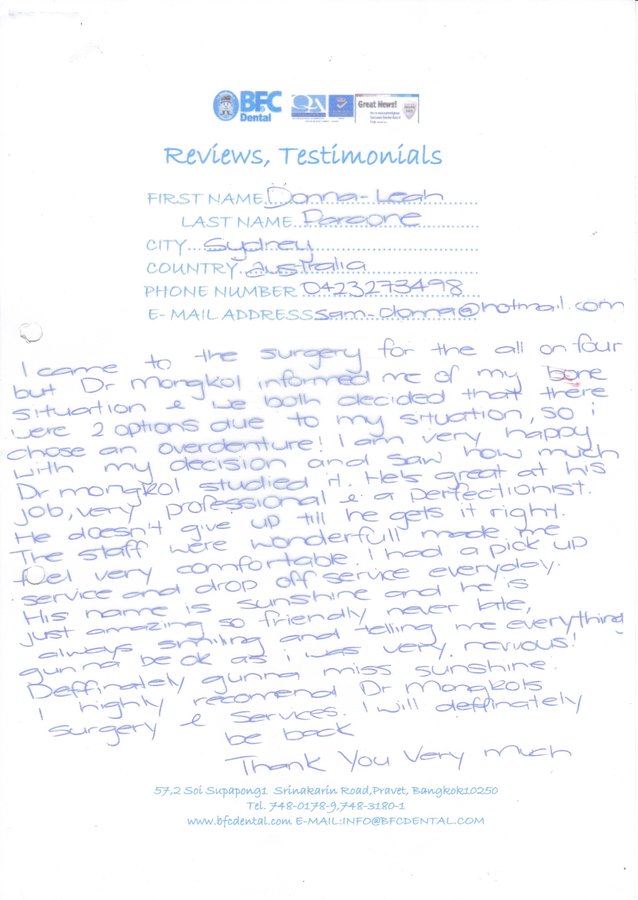 BFC
Dental
QA
Great News!
Reviews, Testimonials
FIRST NAME Donna-Leah
LAST NAME Paraone
CITY Sydney
COUNTRY Australia
PHONE NUMBER 0423273498
E-MAIL ADDRESS sam-donna@hotmail.com
I came to the surgery for the all on four
but Dr Mongkol informed me of my bone
situation & we both decided that there
were 2 options due to my situation, so i
chose an overdenture! I am very happy
with my decision and saw how much
Dr mongkol studied it. He's great at his
job, very professional & a perfectionist.
He doesn't give up till he gets it right.
The staff were wonderfull made me
fuel very comfortable. I had a pick up
service and drop off service everyday.
His name is sunshine and he is
just amazing so friendly never late,
always smiling and telling me everything
gunna be ok as i was very nervous!
Deffinately gunna miss sunshine.
I highly recomend Dr Mongkols
surgery & services. I will deffinately
be back
Thank You Very Much
57,2 Soi Supapong1 Srinakarin Road,Pravet, Bangkok10250
Tel. 748-0178-9,748-3180-1
www.bfcdental.com E-MAIL:INFO@BFCDENTAL.COM